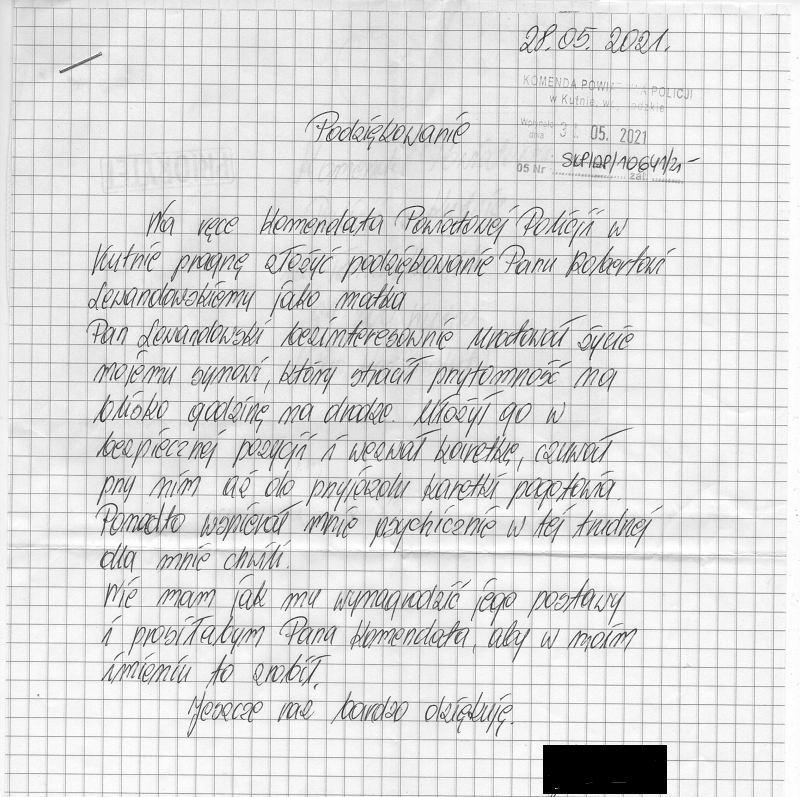 28.05.2021.
KOMENDA POWI A POLICJI
w Kutnie, w
dnia 05. 2021
05 Nr SKP/DP/10641/21 zał.
Podziękowanie
Na ręce Komendata Powiatowej Policji w
Kutnie pragnę złożyć podziękowanie Panu Robertowi
Lewandowskiemu jako matka
Pan Lewandowski bezinteresownie uratował życie
mojemu synowi, który stracił przytomność na
blisko godzinę na drodze. Ułożył go w
bezpiecznej pozycji i wezwał karetkę, czuwał
przy nim aż do przyjazdu karetki pogotowia.
Ponadto wspierał mnie psychicznie w tej trudnej
dla mnie chwili.
Nie mam jak mu wynagrodzić jego postawy
i prosiłabym Pana Komendata, aby w moim
imieniu to zrobił.
Jeszcze raz bardzo dziękuję.